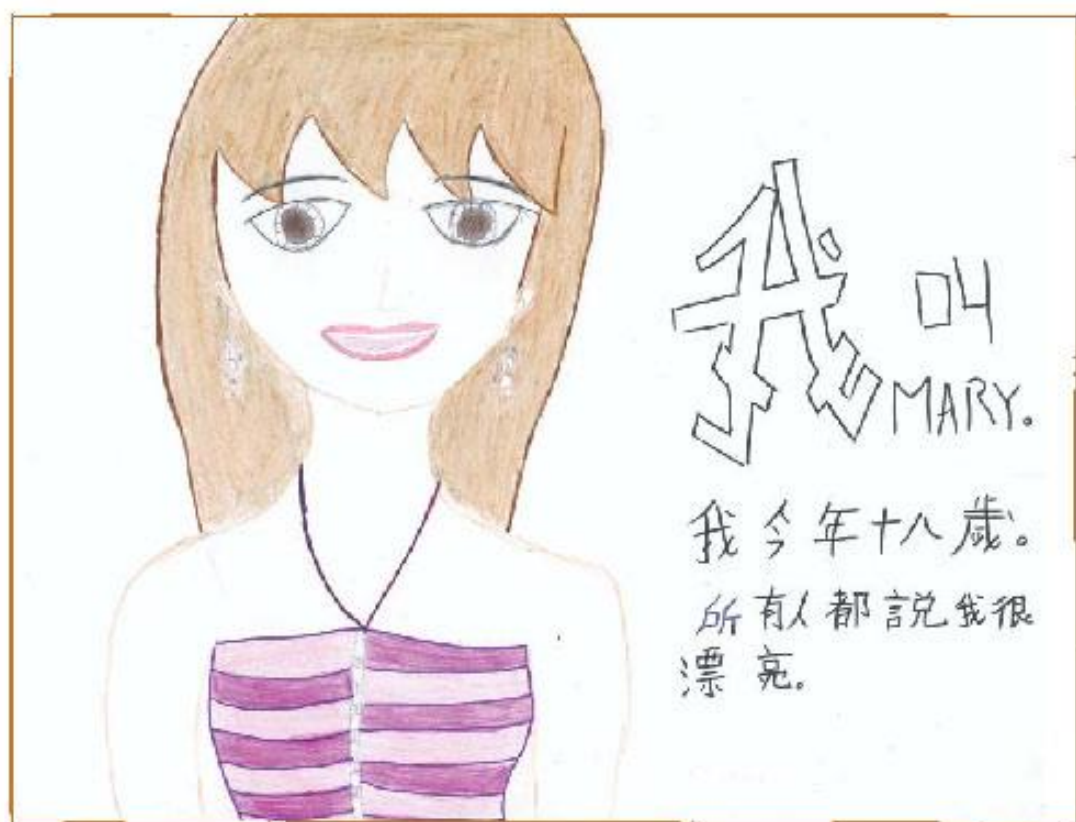 我叫
MARY。
我今年十八歲。
所有人都說我很
漂亮。